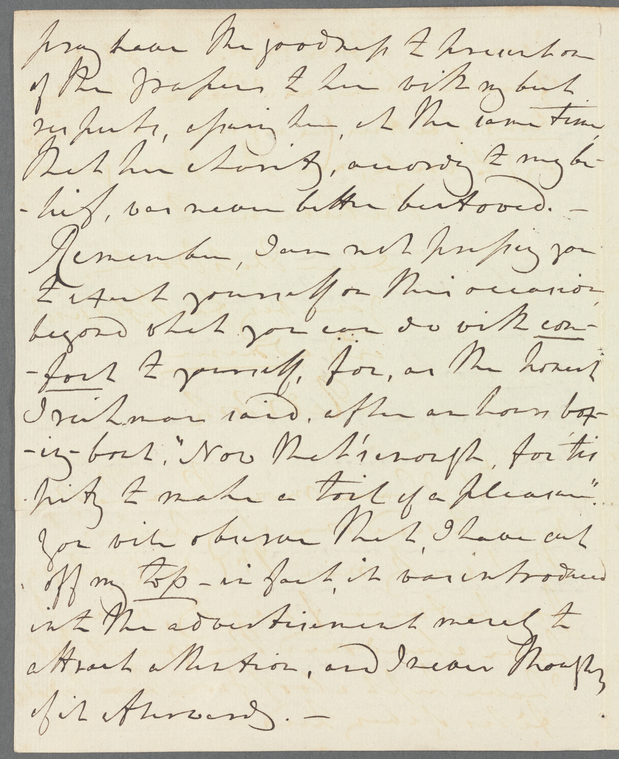 pray have the goodness to present one
of the papers to her with my best
respects, assuring her, at the same time,
that her charity, according to my be-
-lief, was never better bestowed. —
Remember, I am not pressing you
to exert yourself on this occasion
beyond what you can do with com-
-fort to yourself, for, as the honest
Irishman said, after an hours box-
-ing-bout, "Now that's enough, for 'tis
pity to make a toil of a pleasure".
You will observe that, I have cut
off my top - in fact, it was introduced
into the advertisement merely to
attract attention, and I never thought
of it afterwards. —